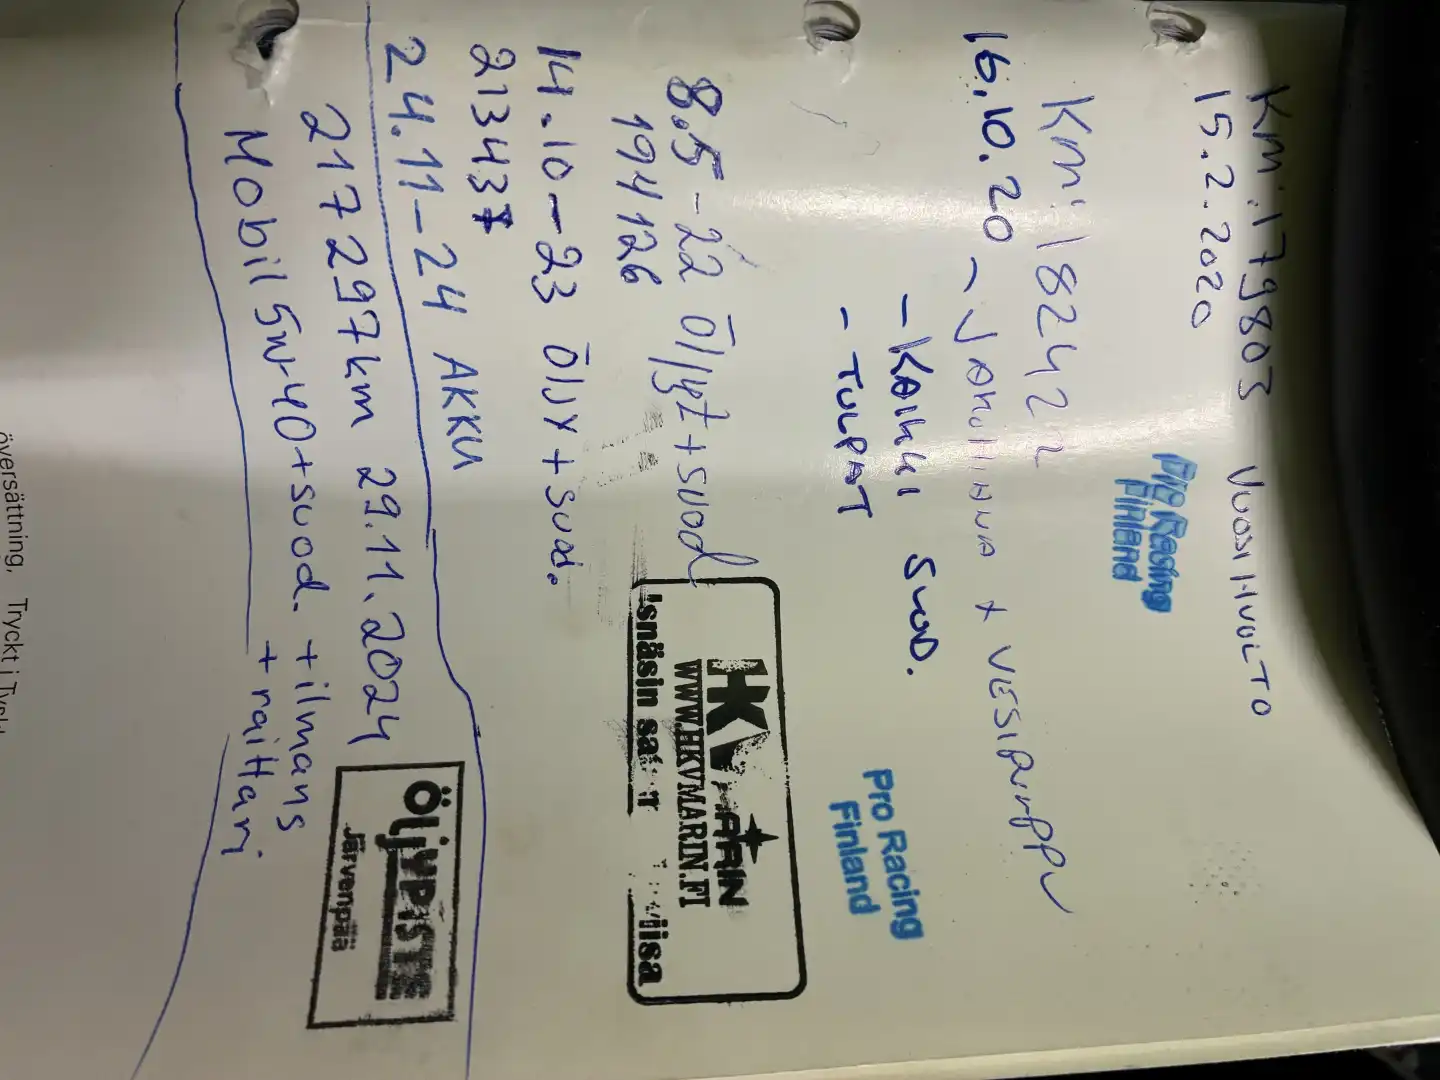 Km: 179803 VUOSIHUOLTO
15.2.2020
Pro Racing
Finland
Km: 182422
16.10.20 - JAKOHIHNA + VESIPUMPPU
- KAIKKI SUOD.
- TULPAT
Pro Racing
Finland
8.5-22 Öljyt + suod
194126
HKV MARIN
WWW.HKVMARIN.FI
14.10-23 ÖLJY + SUOD.
213437
24.11-24 AKKU
217297km 29.11.2024
Mobil 5w-40 + suod. + ilmans
+ raittari
ÖLJYPISTE
Järvenpää
översättning, Tryckt i